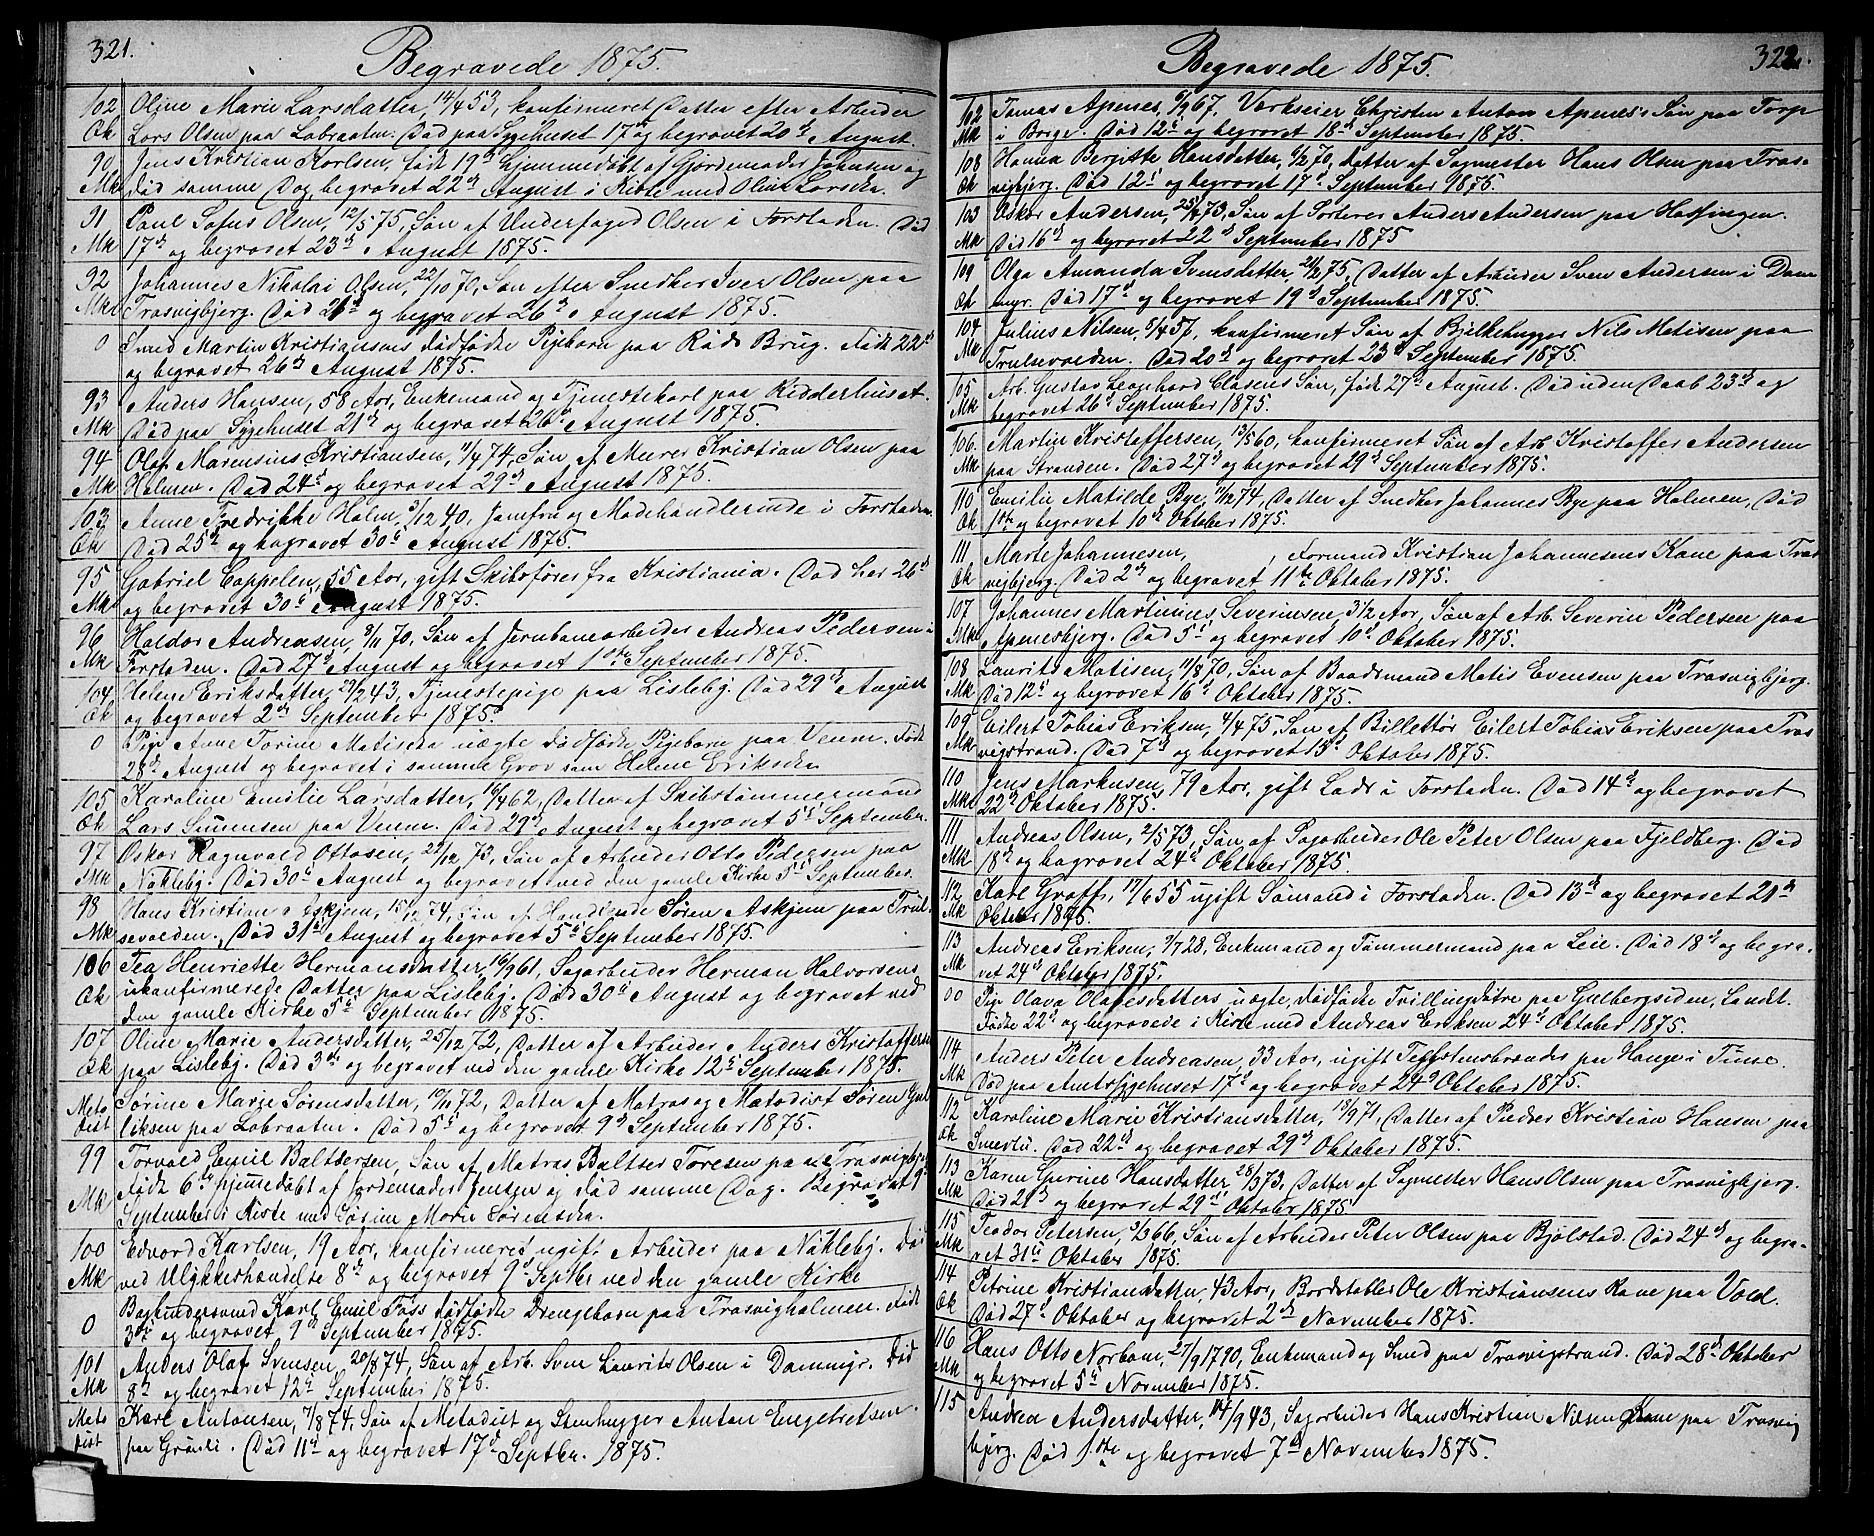 321.
Begravede 1875.
102 Oline Marie Larsdatter, 14/4 53, konfirmeret Datter efter Arbeider
Qk Lars Olsen paa Labraaten. Död paa Sygehuset 17de og begravet 20de August.
90 Jens Kristian Karlsen, födt 19de hjemmedöbt af Gjordemoder Johnsen og
Mk död samme Dag, begravet 22de August i Kiste med Oline Larsdtr.
91 Paul Sofus Olsen, 12/5 75, Sön af Underfoged Olsen i Forstaden. Död
Mk 17de og begravet 23de August 1875.
92 Johannes Nikolai Olsen, 22/10 70, Sön efter Snedker Iver Olsen paa
Mk Trosvigbjerg. Död 21de og begravet 26de August 1875.
0 Smed Martin Kristiansens dödfödte Pigebarn paa Röds Brug. Födt 22de
og begravet 26de August 1875.
93 Anders Hansen, 58 Aar, Enkemand og Tjenestekarl paa Ridderhuset.
Mk Död paa Sygehuset 21de og begravet 26de August 1875.
94 Olaf Marensius Kristiansen, 11/4 74, Sön af Murer Kristian Olsen paa
Mk Holmen. Död 24de og begravet 29de August 1875.
103 Anne Fredrikke Holm, 3/12 40, Jomfru og Modehandlerinde i Forstaden.
Qk Död 25de og begravet 30te August 1875.
95 Gabriel Coppelen, 55 Aar, gift Skibsförer fra Kristiania. Död her 26de
Mk og begravet 30te August 1875.
96 Haldor Andreasen, 9/11 70, Sön af Jernbanearbeider Andreas Pedersen i
Mk Forstaden. Död 27de August og begravet 1ste September 1875.
104 Helene Eriksdatter, 29/2 43, Tjenestepige paa Lisleby. Död 29de August
Qk og begravet 2den September 1875.
0 Pige Anne Torine Matisdtr uægte dödfödte Pigebarn paa Veum. Födt
28de August og begravet i samme Grav som Helene Eriksdtr.
105 Karoline Emilie Larsdatter, 16/4 62, Datter af Skibstömmermand
Qk Lars Simensen paa Veum. Död 29de August og begravet 5te September.
97 Oskar Ragnvald Ottosen, 29/12 73, Sön af Arbeider Otto Pedersen paa
Mk Nökleby. Död 30te August og begravet ved den gamle Kirke 5te September.
98 Hans Kristian Askjem, 15/12 74, Sön af Handlende Sören Askjem paa Trul-
Mk sevolden. Död 31te August og begravet 5te September 1875.
106 Tea Henriette Hermansdatter, 16/9 61, Sagarbeider Herman Halvorsens
Qk ukonfirmerede Datter paa Lisleby. Död 30te August og begravet ved
den gamle Kirke 5te September 1875.
107 Oline Marie Andersdatter, 25/12 72, Datter af Arbeider Anders Kristoffersen
Qk paa Lisleby. Död 3die og begravet ved den gamle Kirke 12te September 1875.
Meto- Sörine Marie Sörensdatter, 10/11 72, Datter af Matros og Metodist Sören Gul-
dist liksen paa Labraaten. Död 5te og begravet 9de September 1875.
99 Torvald Emil Baltsersen, Sön af Matros Baltser Toresen paa Trosvigbjerg
Mk födt 6te hjemmedöbt af Jordemoder Jensen og död samme Dag. Begravet 9de
September i Kiste med Sörine Marie Sörensdtr.
100 Edvard Karlsen, 19 Aar, konfirmeret ugift Arbeider paa Nökleby. Död
Mk ved Ulykkeshændelse 8de og begravet 9de Septbr ved den gamle Kirke
0 Bagersvend Karl Emil Foss dödfödte Drengebarn paa Trosvigholmen. Födt
3die og begravet 9de September 1875.
101 Anders Olaf Svensen, 20/8 74, Sön af Arb. Sven Laurits Olsen i Dammyr. Död
Mk 8de og begravet 12te September 1875.
Meto- Karl Antonsen, 7/8 74, Sön af Metodist og Stenhugger Anton Engebretsen
dist paa Grönli. Död 11te og begravet 17de Septbr. 1875.
322.
Begravede 1875.
102 Tomas Apenes, 6/9 67. Verkseier Christen Anton Apenes's Sön paa Torp
Mk i Borge. Död 12te og begravet 18de September 1875.
108 Hanna Bergitte Hansdatter, 6/2 70, Datter af Sagmester Hans Olsen paa Tros-
Qk vigbjerg. Död 12te og begravet 17de September 1875.
103 Oskar Andersen, 25/4 73, Sön af Sorterer Anders Andersen paa Hassingen.
Mk Död 16de og begravet 22de September 1875
109 Olga Amanda Svensdatter, 21/2 75, Datter af Arbeider Sven Andersen i Dam-
Qk myr. Död 17de og begravet 19de September 1875.
104 Julius Nilsen, 5/4 57, konfirmeret Sön af Bjelkehugger Nils Matisen paa
Mk Trulsevolden. Död 20de og begravet 23de September 1875.
105 Arb. Gustav Leonhard Clasens Sön, födt 27de August. Död uden Daab 23de og
Mk begravet 26de September 1875.
106 Martin Kristoffersen, 13/5 60, konfirmeret Sön af Arb. Kristoffer Andersen
Mk paa Stranden. Död 27de og begravet 29de September 1875.
110 Emilie Matilde Bye, 7/12 74, Datter af Snedker Johannes Bye paa Holmen. Död
Qk 1ste og begravet 10de Oktober 1875.
111 Marte Johannesen, , Formand Kristian Johannesens Kone paa Tros-
Qk vigbjerg. Död 2den og begravet 11te Oktober 1875.
107 Johannes Martinius Severinsen, 3 1/2 Aar, Sön af Arb. Severin Pedersen paa
Mk Apenesbjerg. Död 5te og begravet 10de Oktober 1875.
108 Laurits Matisen, 11/8 70, Sön af Baadsmand Matis Evensen paa Trosvigbjerg.
Mk Död 12te og begravet 16de Oktober 1875.
109 Eilert Tobias Eriksen, 4/4 75, Sön af Billettör Eilert Tobias Eriksen paa Tros-
Mk vigstrand. Död 7de og begravet 13de Oktober 1875.
110 Jens Markusen, 79 Aar, gift Lods i Forstaden. Död 14de og begravet
Mk 22de Oktober 1875.
111 Andreas Olsen, 2/5 73, Sön af Sagarbeider Ole Peter Olsen paa Fjeldberg. Död
Mk 18de og begravet 24de Oktober 1875.
112 Karl Graff, 17/6 55 ugift Sömand i Forstaden. Död 13de og begravet 21de
Mk Oktober 1875.
113 Andreas Eriksen, 9/7 28, Enkemand og Tömmermand paa Leie. Död 18de og begra-
Mk vet 24de Oktober 1875.
00 Pige Olava Olavesdatters uægte, dödfödte Tvillingdötre paa Gulbergsiden, Landet.
Födte 22de og begravede i Kiste med Andreas Eriksen 24de Oktober 1875.
114 Anders Peter Andreasen, 33 Aar, ugift Teglstensbrænder paa Hauge i Tune.
Mk Död paa Amtssygehuset 17de og begravet 24de Oktober 1875.
112 Karoline Marie Kristiansdatter, 18/9 71, Datter af Peder Kristian Hansen paa
Qk Smertu. Död 22de og begravet 29de Oktober 1875.
113 Karen Gurine Hansdatter, 28/3 73, Datter af Sagmester Hans Olsen paa Trosvigbjerg.
Mk Död 21de og begravet 29de Oktober 1875
115 Teodor Petersen, 3/3 66, Sön af Arbeider Peter Olsen paa Bjölstad. Död 24de og begra-
Mk vet 31te Oktober 1875.
114 Petrine Kristiansdatter, 43 Aar, Bordstabler Ole Kristiansens Kone paa Vold.
Qk Död 27de Oktober og begravet 2den November 1875.
116 Hans Otto Norbom, 27/9 1790, Enkemand og Smed paa Trosvigstrand. Död 28de Oktober
Mk og begravet 5te November 1875.
115 Andrea Andersdatter, 14/9 43, Sagarbeider Hans Kristian Nilsens Kone paa Trosvig
bjerg. Död 1ste og begravet 7de November 1875.